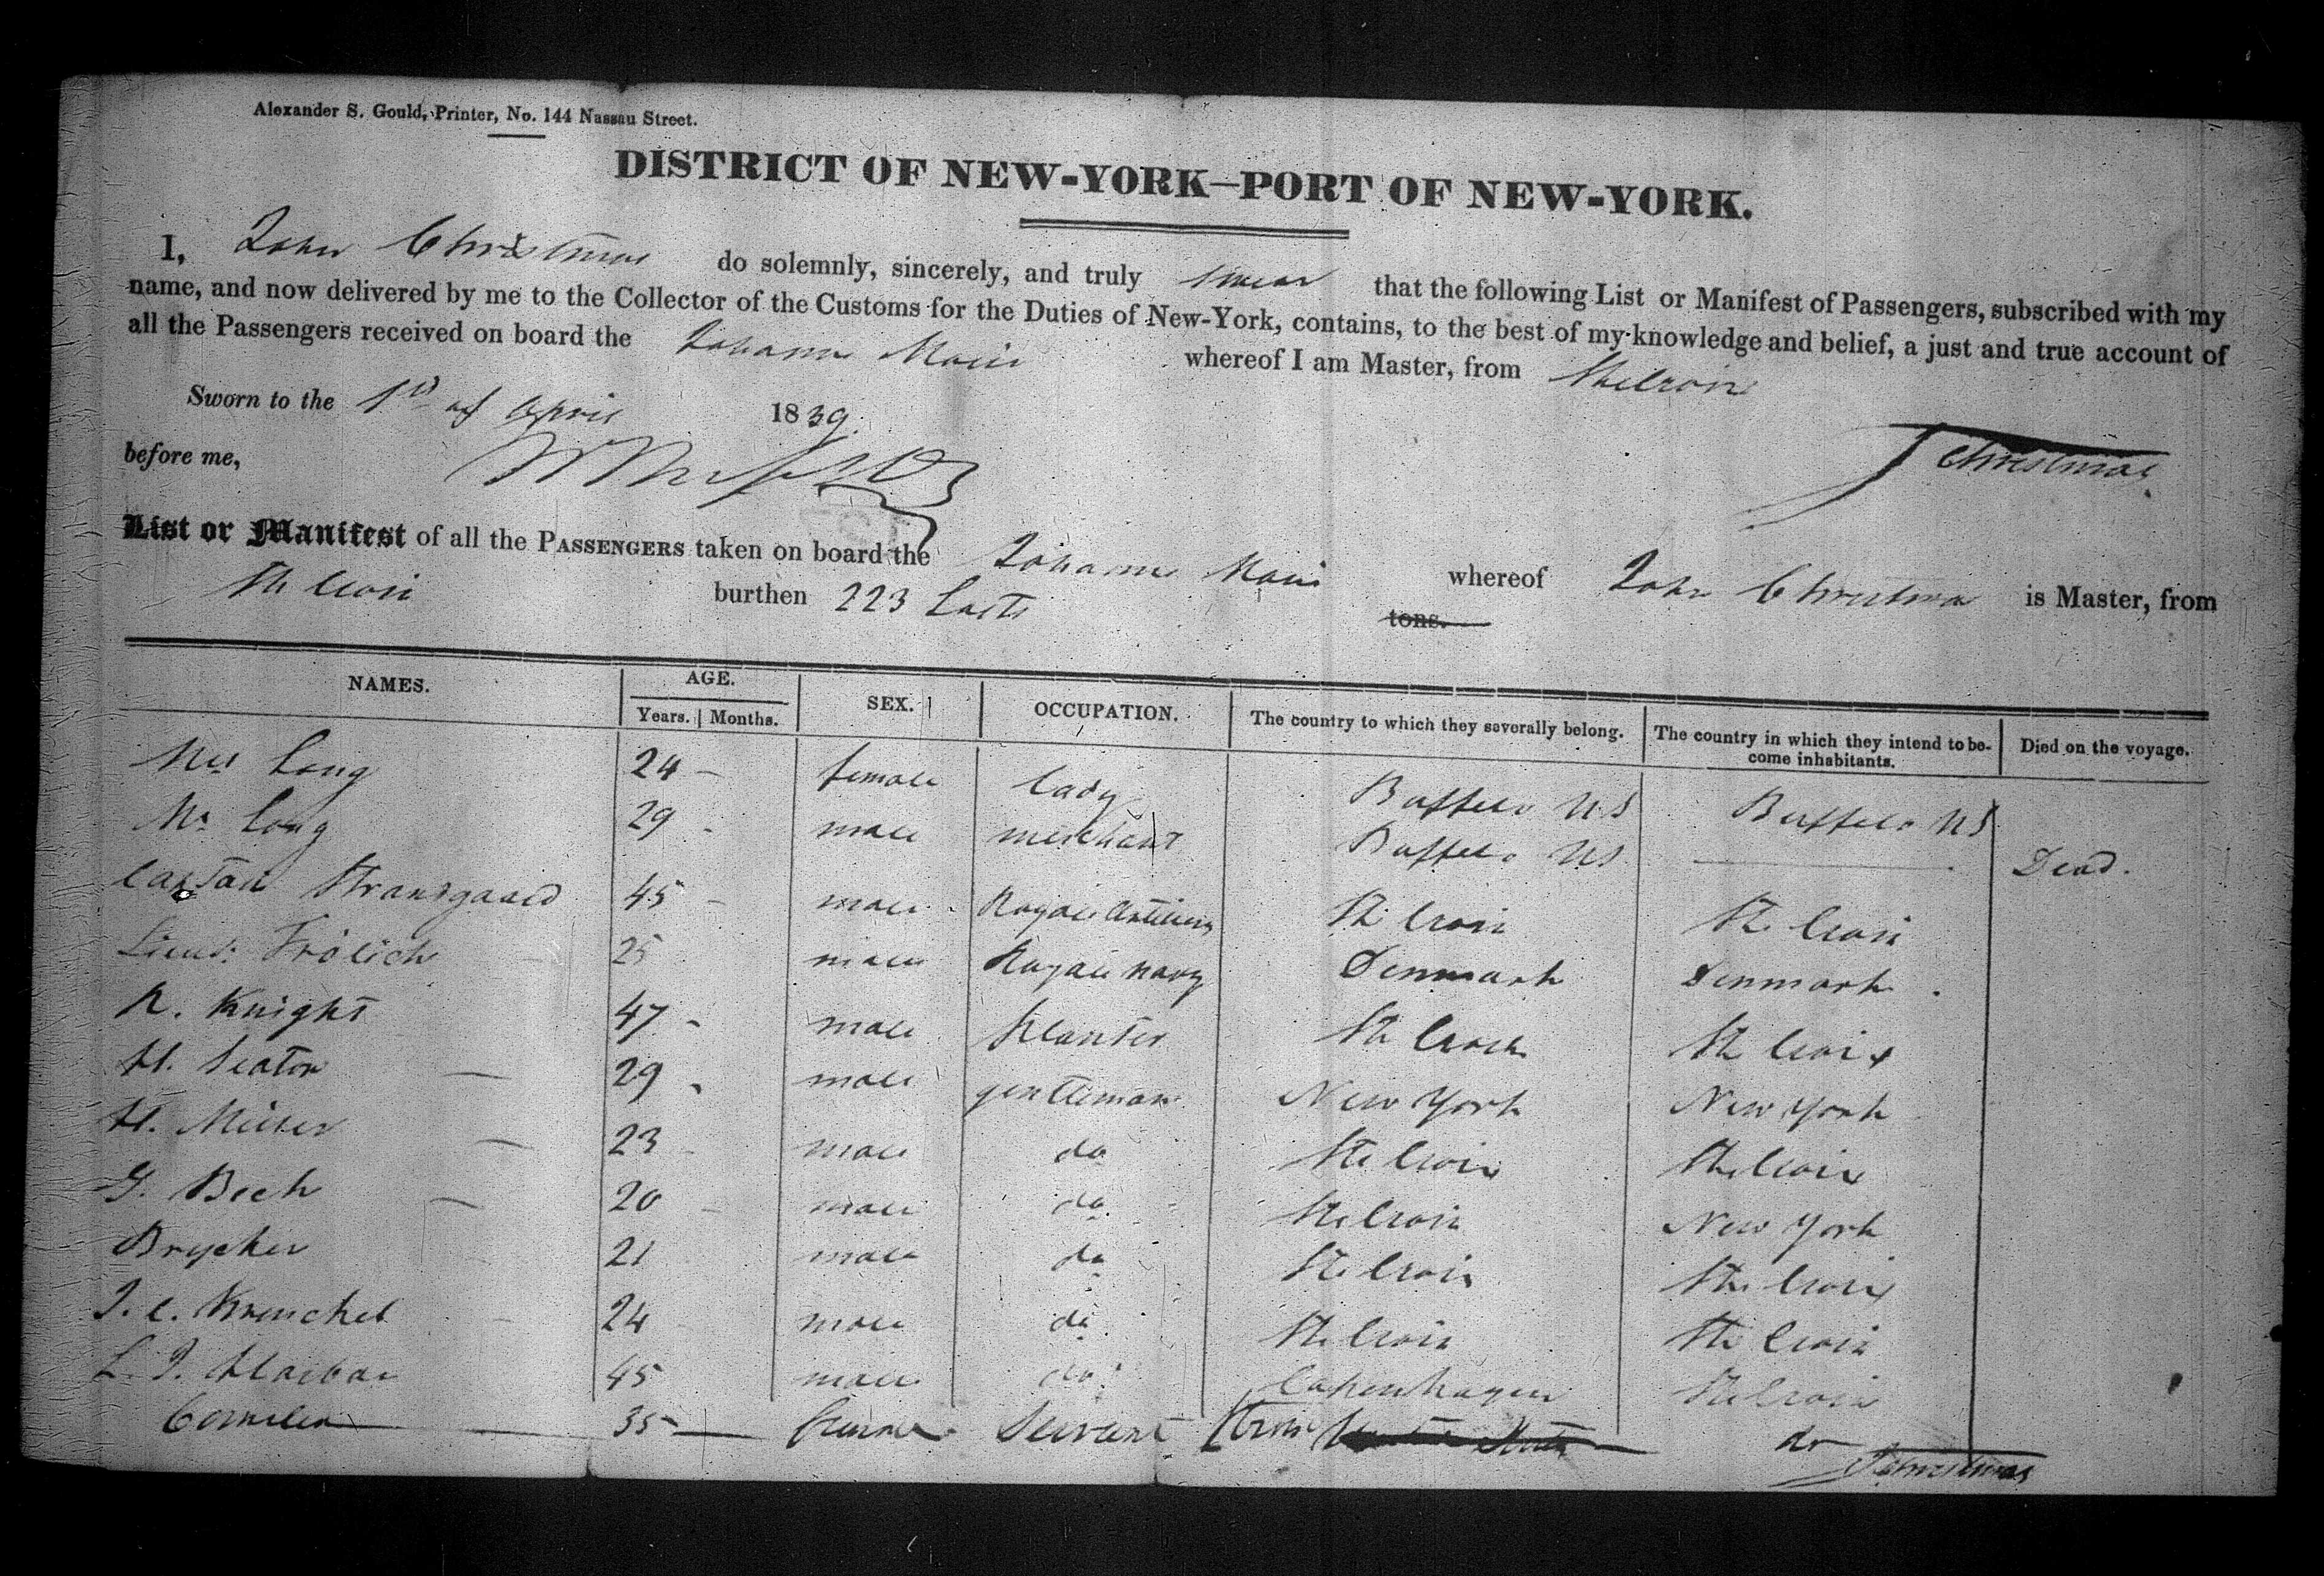 Alexander S. Gould, Printer, No. 144 Nassau Street.
DISTRICT OF NEW-YORK—PORT OF NEW-YORK.
I, John Christmas do solemnly, sincerely, and truly swear that the following List or Manifest of Passengers, subscribed with my
name, and now delivered by me to the Collector of the Customs for the Duties of New-York, contains, to the best of my knowledge and belief, a just and true account of
all the Passengers received on board the Johanne Marie whereof I am Master, from St Croix
Sworn to the 1st of April 1839.
before me,
J Christmas
List or Manifest of all the PASSENGERS taken on board the Johanne Marie whereof John Christmas is Master, from
St Croix burthen 223 Lasts tons.
NAMES. AGE. SEX. OCCUPATION. The country to which they severally belong. The country in which they intend to be- Died on the voyage.
Years. Months. come inhabitants.
Mrs Long 24 - female lady Buffelo US Buffelo US
Mr Long 29 - male merchant Buffelo US — Dead.
Captan Strandgaard 45 - male Royale Artillery St Croix St Croix
Lieut: Frölich 25 male Royale navy Denmark Denmark
R. Knight 47 - male Planter St Croix St Croix
H. Seaton — 29 - male gentleman New York New York
H. Miller — 23 - male do St Croix St Croix
G. Bech — 20 - male do St Croix New York
Brycher 21 male do St Croix St Croix
J. C. Krenchel 24 male do St Croix St Croix
L. J. 45 male do Copenhagen St Croix
Cornelia — 35 — female Servant St Croix do
J Christmas